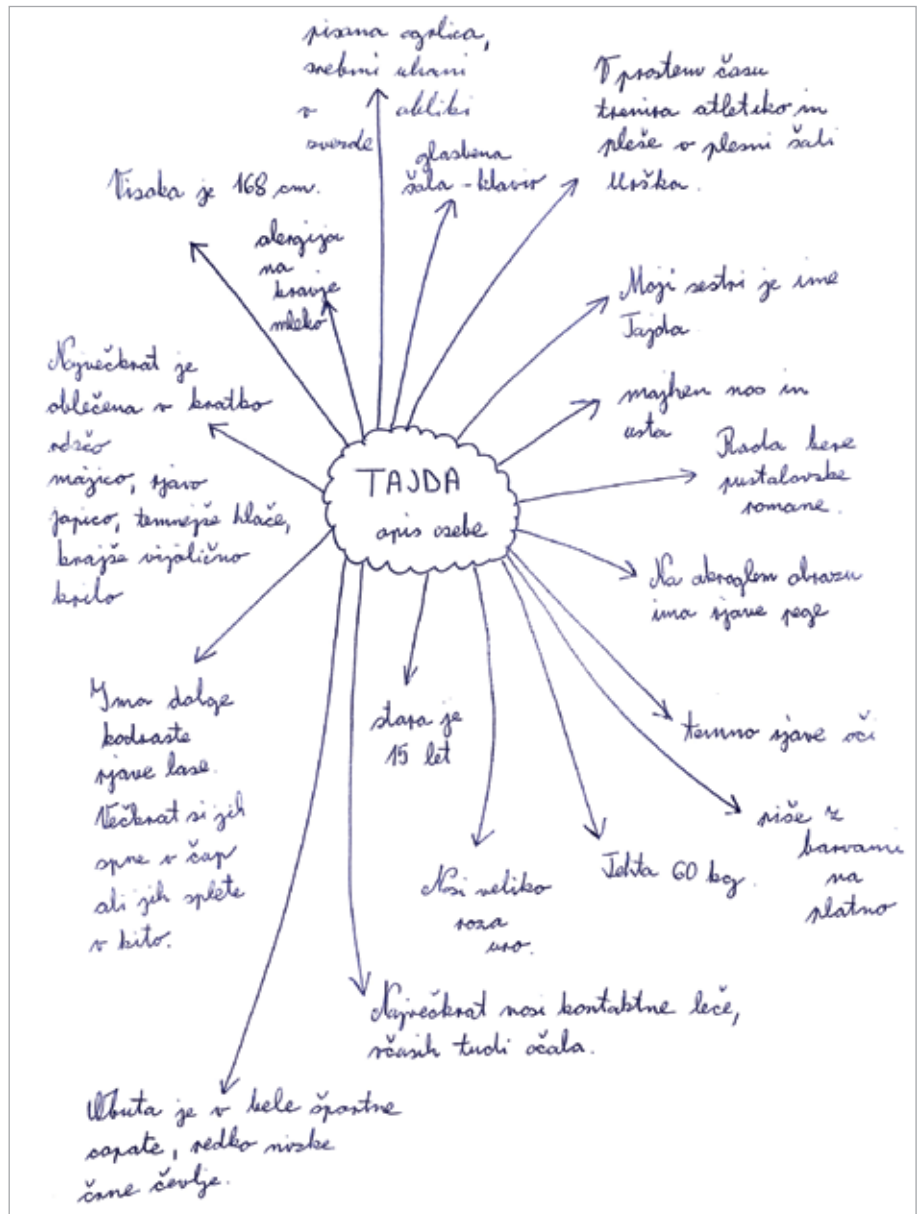 TAJDA
opis osebe
pisana ogrlica,
srebrni uhani
v obliki
zvezde
glasbena
šola - klavir
V prostem času
trenira atletiko in
pleše v plesni šoli
Urška.
Visoka je 168 cm.
alergija
na
kravje
mleko
Moji sestri je ime
Tajda.
majhen nos in
usta
Rada bere
pustolovske
romane.
Na okroglem obrazu
ima rjave pege
temno rjave oči
riše z
barvami
na
platno
Tehta 60 kg.
Nosi veliko
roza
uro.
stara je
15 let
Največkrat nosi kontaktne leče,
včasih tudi očala.
Obuta je v bele športne
copate, redko nizke
črne čevlje.
Ima dolge
kodraste
rjave lase.
Večkrat si jih
spne v čop
ali jih splete
v kito.
Največkrat je
oblečena v kratko
rdečo
majico, rjavo
jopico, temnejše hlače,
krajše vijolično
krilo